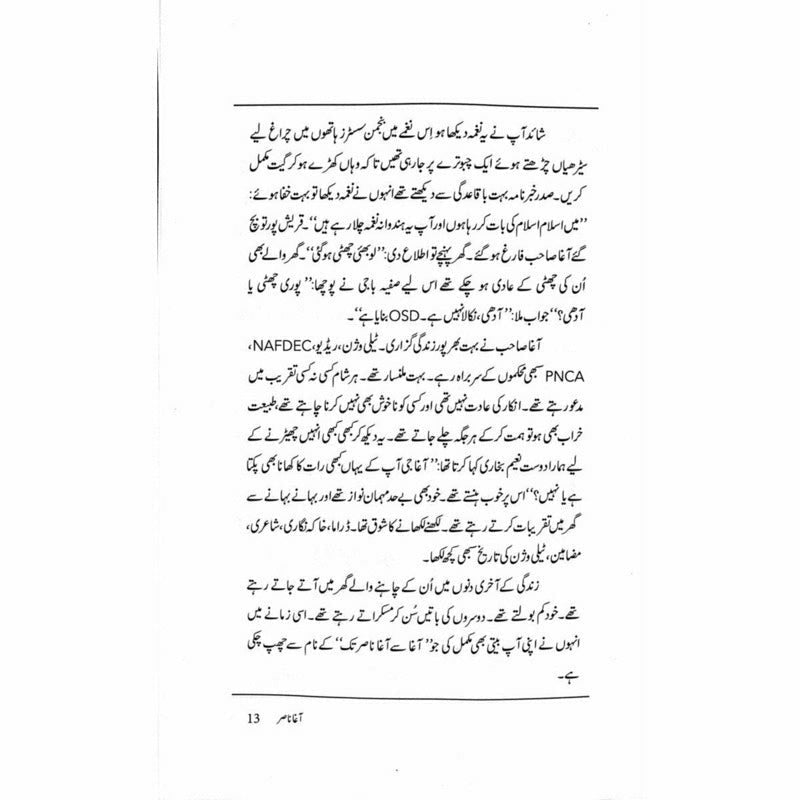 شائد آپ نے یہ نغمہ دیکھا ہو اِس نغمے میں بنجمن سسٹرز ہاتھوں میں چراغ لیے
سیڑھیاں چڑھتے ہوئے ایک چبوترے پر جا رہی تھیں تاکہ وہاں کھڑے ہو کر گیت مکمل
کریں۔ صدر خبرنامہ بہت باقاعدگی سے دیکھتے تھے انہوں نے نغمہ دیکھا تو بہت خفا ہوئے:
’’میں اسلام اسلام کی بات کر رہا ہوں اور آپ یہ ہندوانہ نغمہ چلا رہے ہیں‘‘۔ قریش پور تو بچ
گئے آغا صاحب فارغ ہو گئے۔ گھر پہنچے تو اطلاع دی: ’’لو بھئی چھٹی ہو گئی‘‘۔ گھر والے بھی
اُن کی چھٹی کے عادی ہو چکے تھے اس لیے صفیہ باجی نے پوچھا: ’’پوری چھٹی یا
آدھی؟‘‘ جواب ملا: ’’آدھی، نکالا نہیں ہے۔ OSD بنایا ہے‘‘۔
آغا صاحب نے بہت بھرپور زندگی گزاری۔ ٹیلی وژن، ریڈیو، NAFDEC،
PNCA سبھی محکموں کے سربراہ رہے۔ بہت ملنسار تھے۔ ہر شام کسی نہ کسی تقریب میں
مدعو رہتے تھے۔ انکار کی عادت نہیں تھی اور کسی کو ناخوش بھی نہیں کرنا چاہتے تھے، طبیعت
خراب بھی ہو تو ہمت کر کے ہر جگہ چلے جاتے تھے۔ یہ دیکھ کر کبھی کبھی انہیں چھیڑنے کے
لیے ہمارا دوست نعیم بخاری کہا کرتا تھا: ’’آغا جی آپ کے یہاں کبھی رات کا کھانا بھی پکتا
ہے یا نہیں؟‘‘ اس پر خوب ہنستے تھے۔ خود بھی بے حد مہمان نواز تھے اور بہانے بہانے سے
گھر میں تقریبات کرتے رہتے تھے۔ لکھنے لکھانے کا شوق تھا۔ ڈراما، خاکہ نگاری، شاعری،
مضامین، ٹیلی وژن کی تاریخ سبھی کچھ لکھا۔
زندگی کے آخری دنوں میں اُن کے چاہنے والے گھر میں آتے جاتے رہتے
تھے۔ خود کم بولتے تھے۔ دوسروں کی باتیں سُن کر مسکراتے رہتے تھے۔ اسی زمانے میں
انہوں نے اپنی آپ بیتی بھی مکمل کی جو ’’آغا سے آغا ناصر تک‘‘ کے نام سے چھپ چکی
ہے۔
آغا ناصر 13